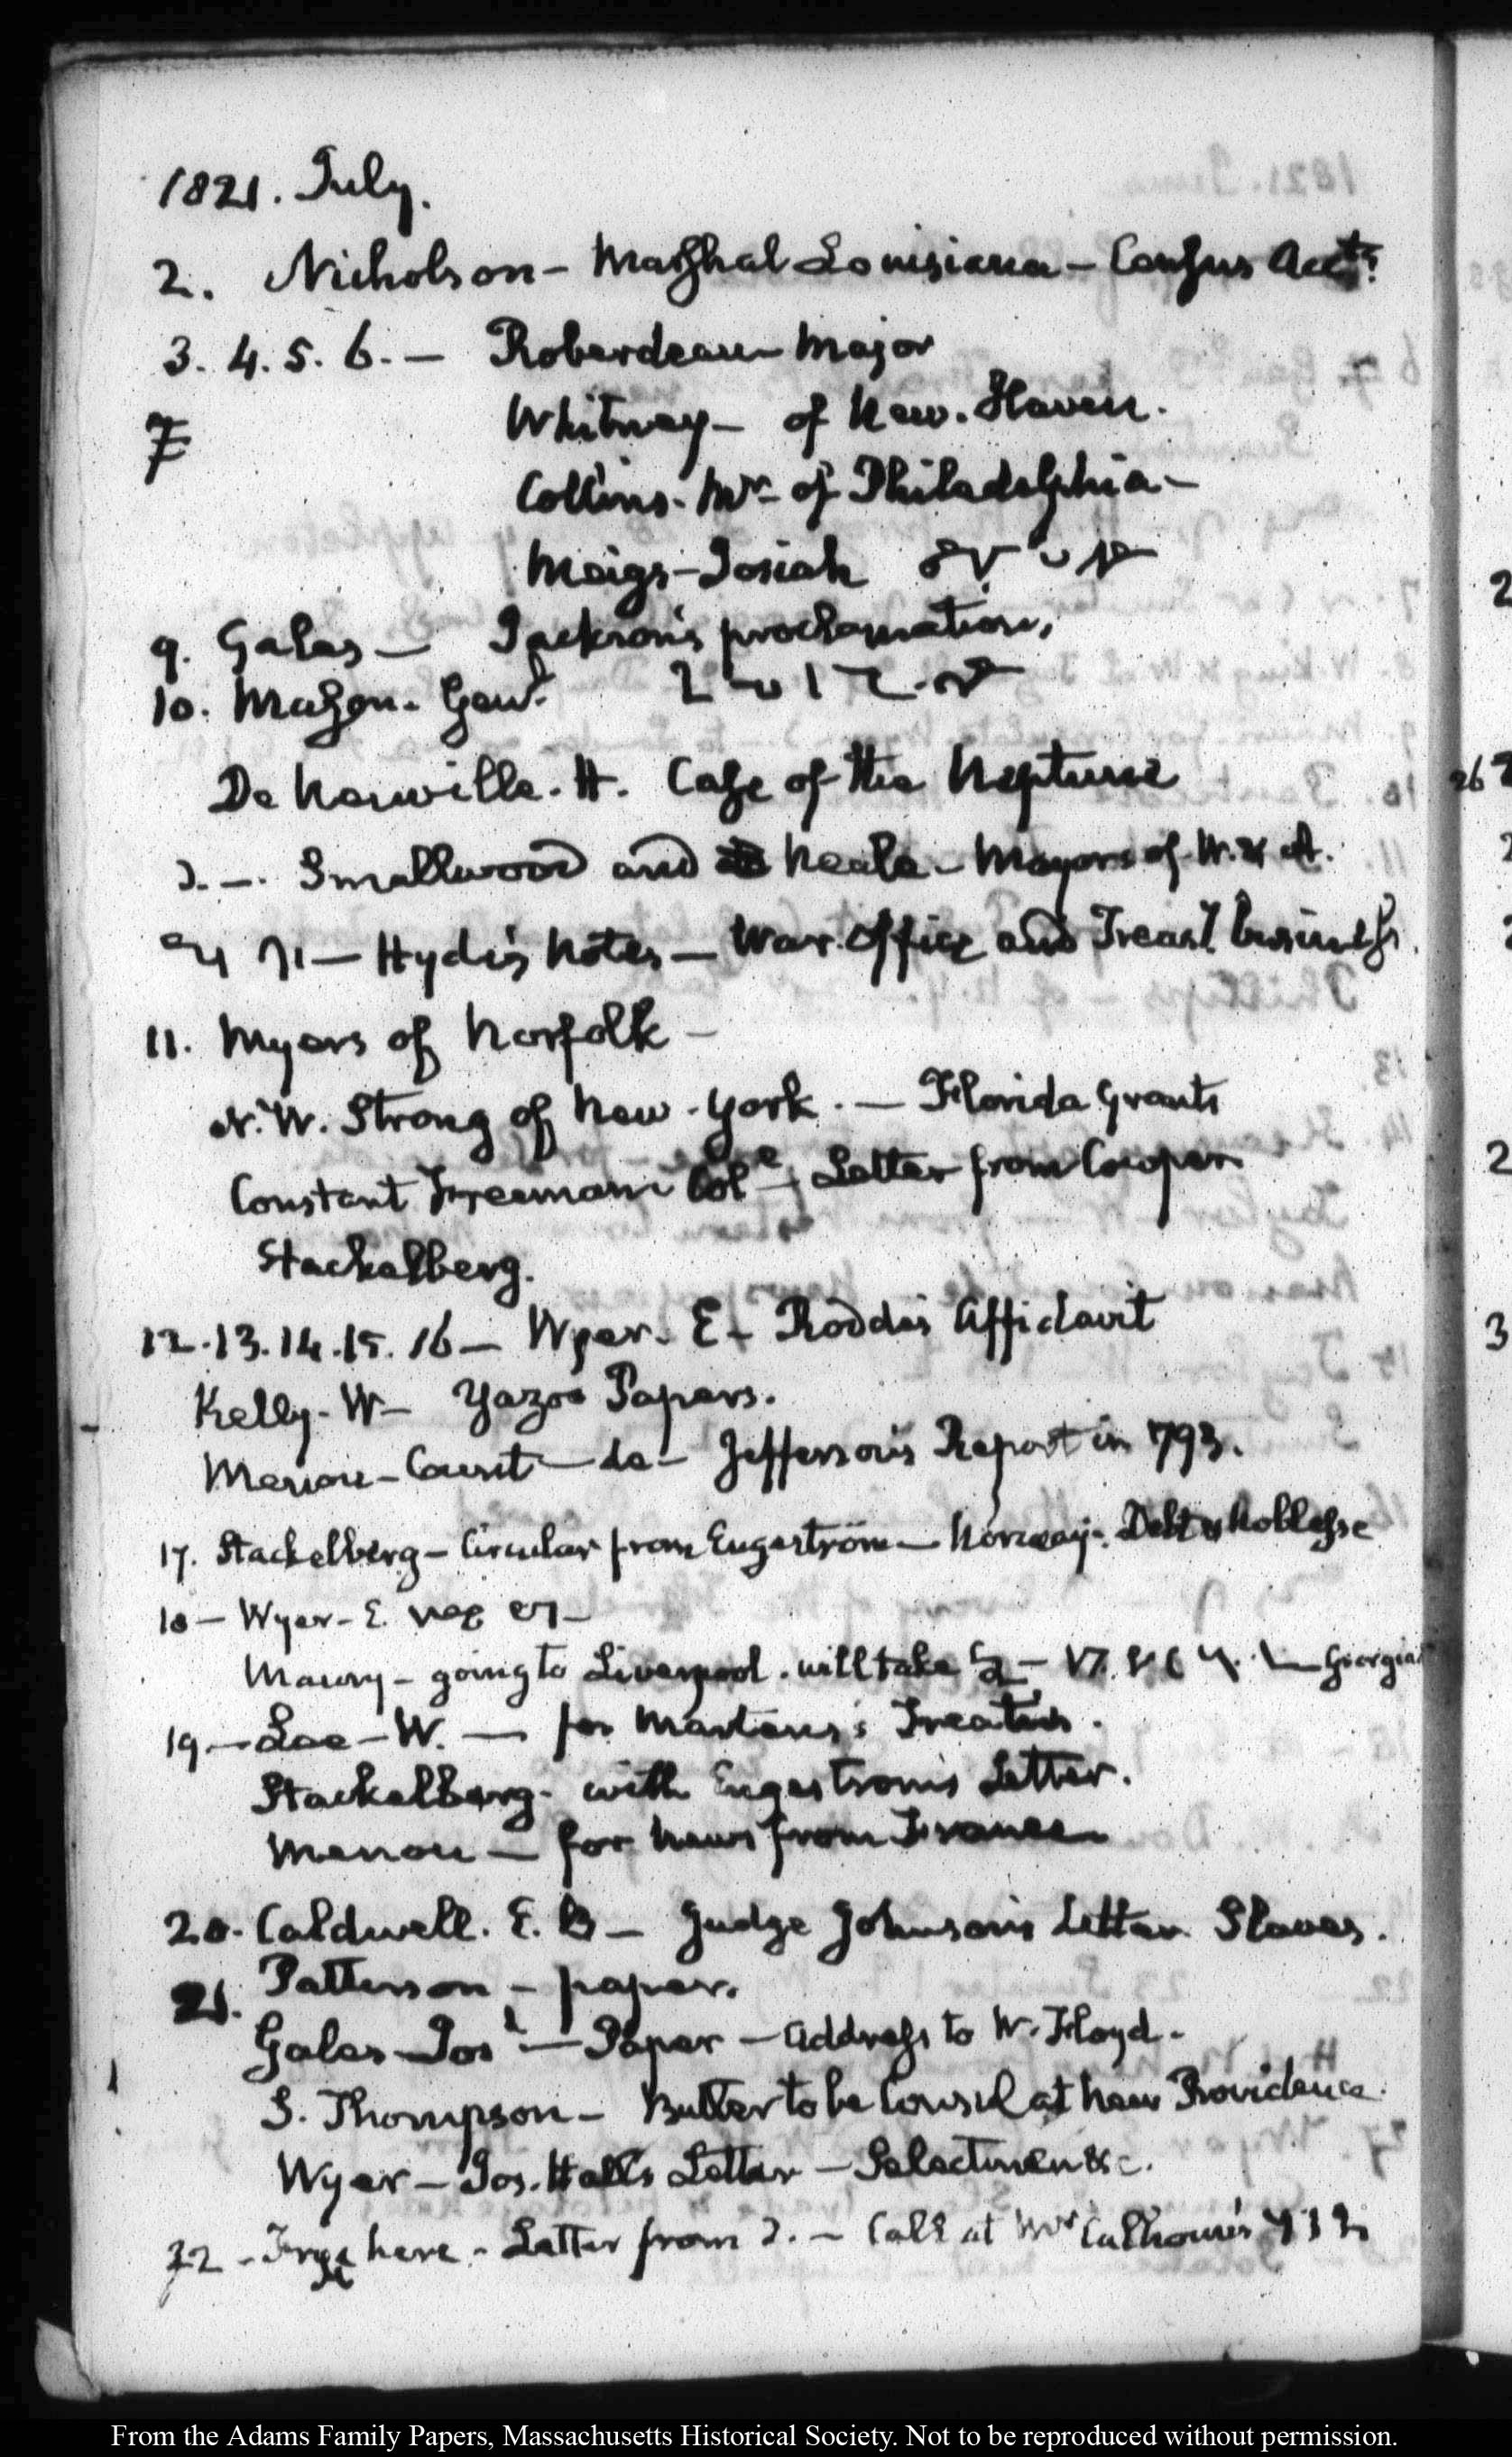 1821. July.
2. Nicholson - Marshal Louisiana - Census Accts.
3. 4. 5. 6. — Roberdeau - Major
7 Whitney - of New-Haven.
Collins - Mr. of Philadelphia -
Meigs - Josiah
9. Gales — Jackson's proclamation,
10. Mason - Genl.
De Neuville. H. Case of the Neptune
Smallwood and Neale - Mayors of W. & A.
— Hyde's Notes — War Office and Treasy. business.
11. Myers of Norfolk -
N. W. Strong of New-York. — Florida Grants
Constant Freeman Col - Letter from Cowper
Stackelberg.
12. 13. 14. 15. 16 — Wyer - E - Rodde's Affidavit
Kelly - W - Yazoo Papers.
Menou - Count — de - Jefferson's Report in 1793.
17. Stackelberg - Circular from Engeström — Norway - Debt & Noblesse
18 — Wyer - E.
Maury - going to Liverpool. will take Georgia
19 — Lee - W. — for Martens's Treaties.
Stackelberg - with Engestrom's Letter.
Menou — for News from France
20. Caldwell. E. B - Judge Johnson's Letter Slaves.
21. Patterson - paper.
Gales Jos — Paper — Address to W. Floyd -
S. Thompson - Butler to be Consul at New Providence.
Wyer — Jos. Hall's Letter — Selectmen &c.
22 - Frye here - Letter from — Call at Mr. Calhoun's
From the Adams Family Papers, Massachusetts Historical Society. Not to be reproduced without permission.